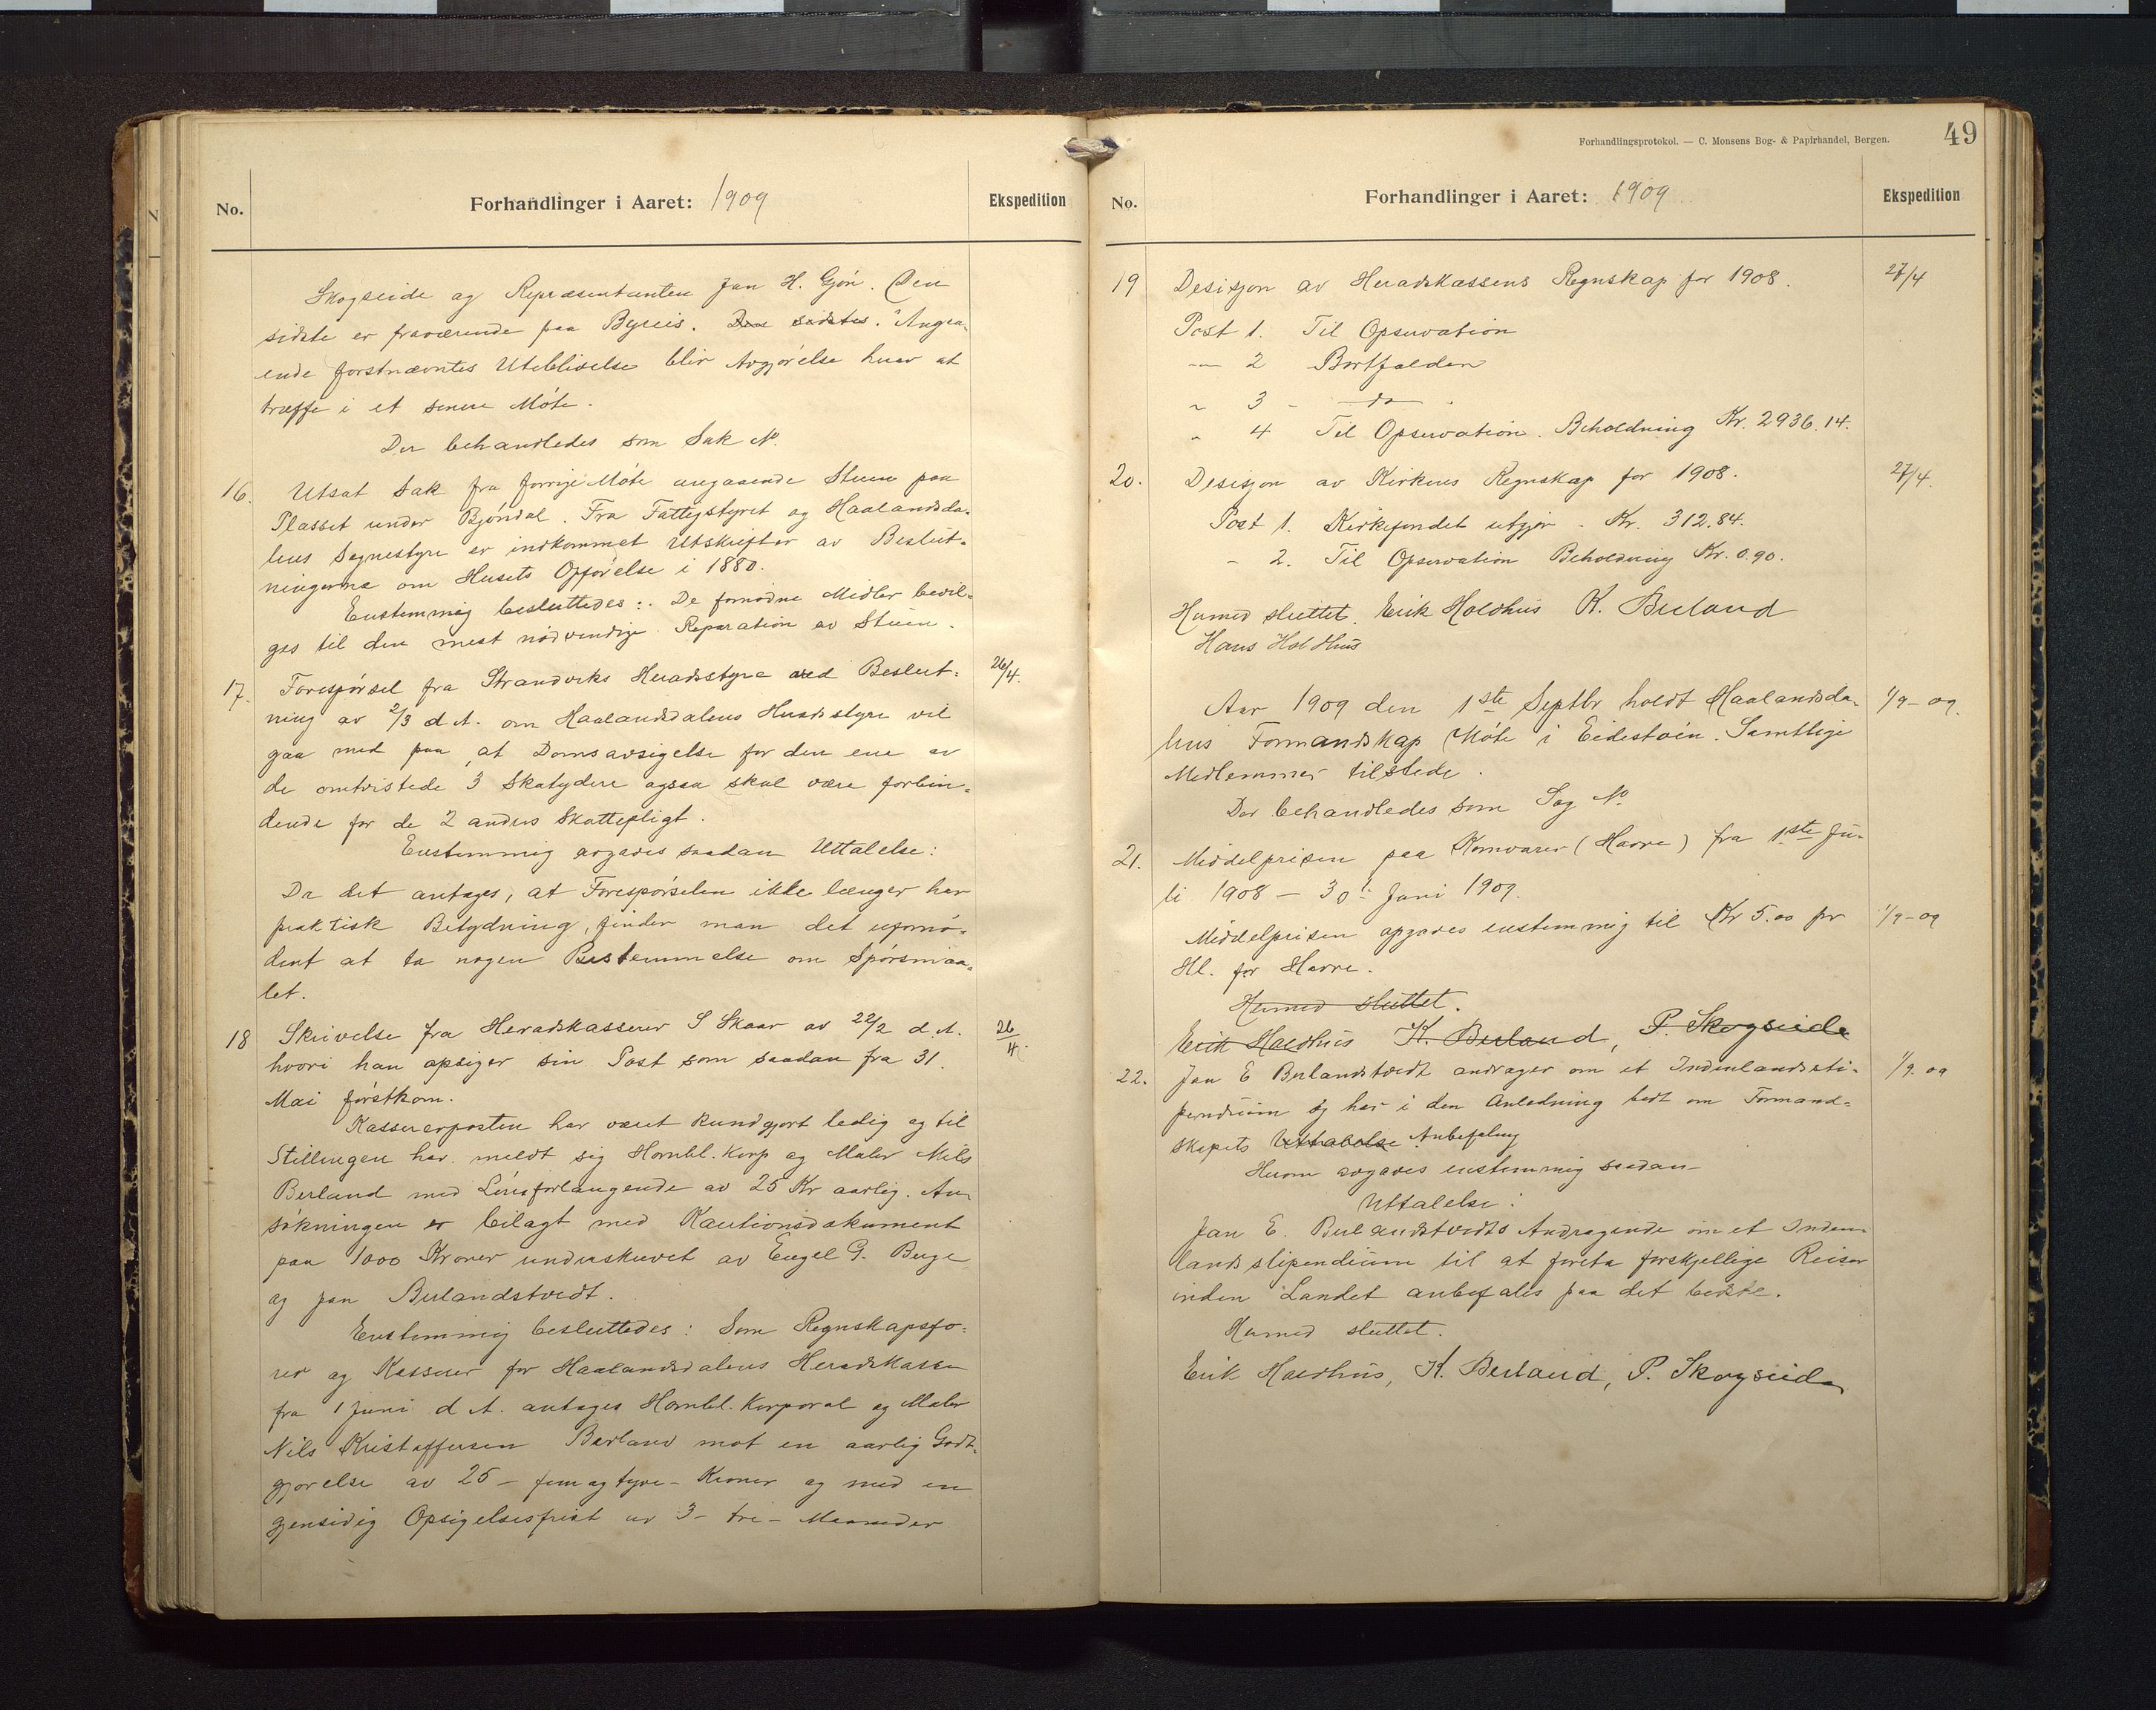 No.
Forhandlinger i Aaret: 1909
Ekspedition
Skogseide og Repræsentanten Jan H. Gjön. Den
sidste er fraværende paa Byreis. Den sidstes. Angaa-
ende førstnævntes Uteblivelse blir Avgjörelse hver at
træffe i et senere Möte.
Der behandledes som Sak No
16. Utsat Sak fra forrige Möte angaaende Stuen paa
Plasset under Bjöndal. Fra Fattigstyret og Haalandsda-
lens Sognestyre er indkommet Utskrifter av Beslut-
ningerne om Husets Opförelse i 1880.
Enstemmig besluttedes: De fornödne Midler bevil-
ges til den mest nödvendige Reparation av Stuen.
17. Forespörsel fra Strandviks Heradsstyre ved Beslut- 26/4.
ning av 2/3 d. A. om Haalandsdalens Heradsstyre vil
gaa med paa, at Domsavsigelse for den ene av
de omtvistede 3 Skatydere ogsaa skal være forbin-
dende for de 2 andres Skattepligt.
Enstemmig avgaves saadan Uttalelse:
Da det antages, at Forespörselen ikke længer har
praktisk Betydning, finder man det ufornö-
dent at ta nogen Bestemmelse om Spörsmaa-
let.
18 Skrivelse fra Heradskasserer S Skaar av 22/2 d. A. 26/4.
hvori han opsiger sin Post som saadan fra 31.
Mai förstkom.
Kassererposten har været kundgjort ledig og til
Stillingen har meldt sig Hornbl. Korp og Maler Nils
Berland med Lönsforlangende av 25 Kr aarlig. An-
sökningen er bilagt med Kautionsdokument
paa 1000 Kroner underskrevet av Engel G. Berge
og Jan Berlandstvedt.
Enstemmig besluttedes: Som Regnskapsfö-
rer og Kasserer for Haalandsdalens Heradskasse
fra 1 Juni d. A. antages Hornbl. Korporal og Maler
Nils Kristoffersen Berland mot en aarlig Godt-
gjörelse av 25 – fem og tyve – Kroner og med en
gjensidig Opsigelsesfrist av 3 – tre – Maaneder
Forhandlingsprotokol. — C. Monsens Bog- & Papirhandel, Bergen.
49
No.
Forhandlinger i Aaret: 1909
Ekspedition
19 Desisjon av Heradskassens Regnskap for 1908. 27/4
Post 1. Til Opservation
— 2 Bortfalden
" 3 - do
" 4 Til Opservation. Beholdning Kr. 2936.14.
20. Desisjon av Kirkens Regnskap for 1908. 27/4.
Post 1. Kirkefondet utgjör - Kr. 312.84.
- 2. Til Opservation Beholdning Kr. 0.90.
Hermed sluttet. Erik Holdhus K. Berland
Hans Holdhus
Aar 1909 den 1ste Septbr holdt Haalandsda- 1/9-09.
lens Formandskap Möte i Eidestöin. Samtlige
Medlemmer tilstede.
Der behandledes som Sag No
21. Middelprisen paa Kornvarer (Havre) fra 1ste Ju-
li 1908 – 30. Juni 1909.
Middelprisen opgaves enstemmig til Kr 5.00 pr 1/9-09
Hl. for Havre.
Hermed sluttet.
Erik Holdhus K. Berland, P. Skogseide
22. Jan E Berlandstvedt andrager om et Indenlandssti- 1/9.09
pendium og har i den Anledning bedt om Formand-
skapets Uttalelse Anbefaling
Herom avgaves enstemmig saadan
Uttalelse:
Jan E. Berlandstvedts Andragende om et Inden-
landsstipendium til at foreta forskjellige Reiser
inden Landet anbefales paa det bedste.
Hermed sluttet.
Erik Holdhus, K. Berland, P. Skogseide